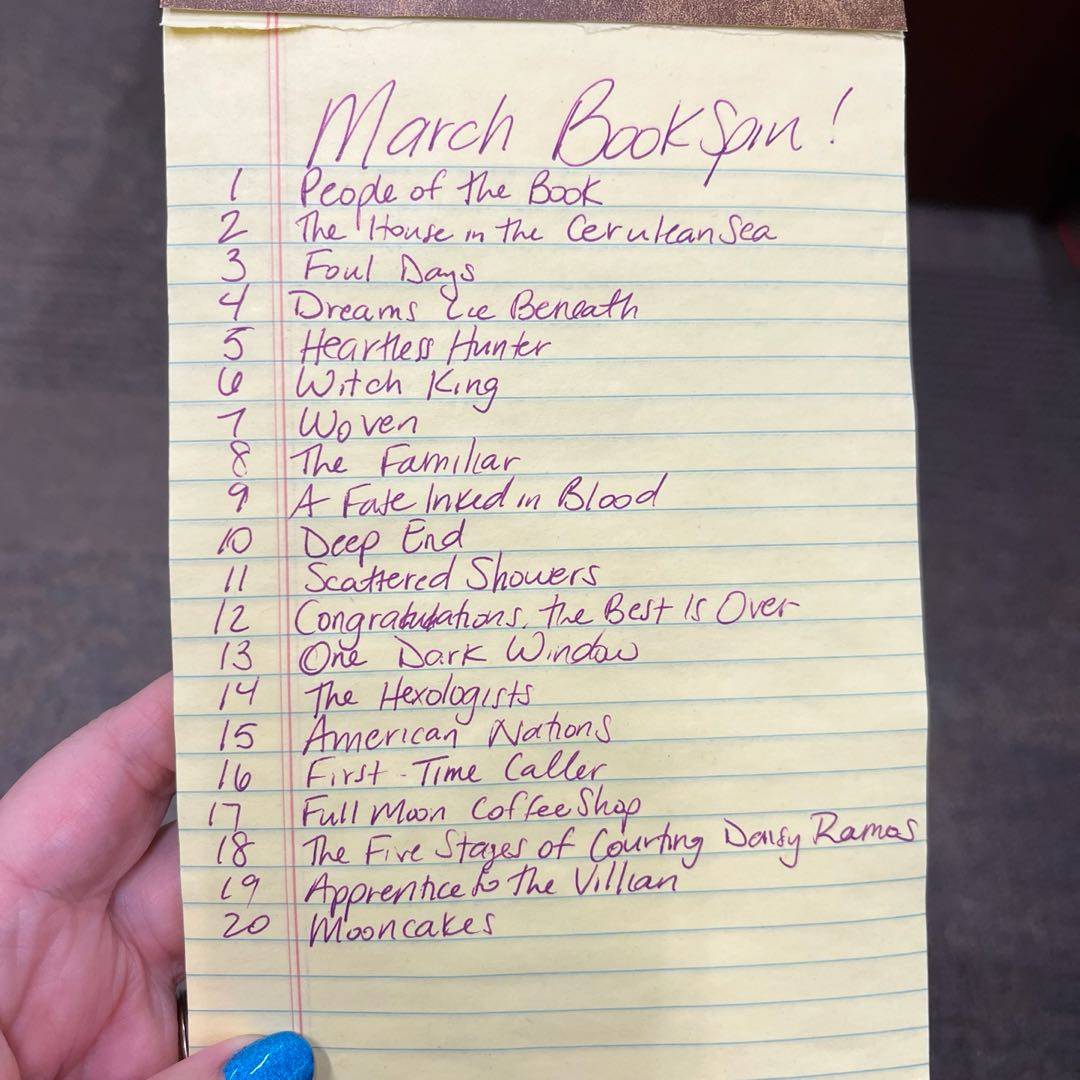 March BookSpin!
1 People of the Book
2 The House in the Cerulean Sea
3 Foul Days
4 Dreams Lie Beneath
5 Heartless Hunter
6 Witch King
7 Woven
8 The Familiar
9 A Fate Inked in Blood
10 Deep End
11 Scattered Showers
12 Congratulations, the Best Is Over
13 One Dark Window
14 The Hexologists
15 American Nations
16 First-Time Caller
17 Full Moon Coffee Shop
18 The Five Stages of Courting Dalisy Ramos
19 Apprentice to the Villian
20 Mooncakes